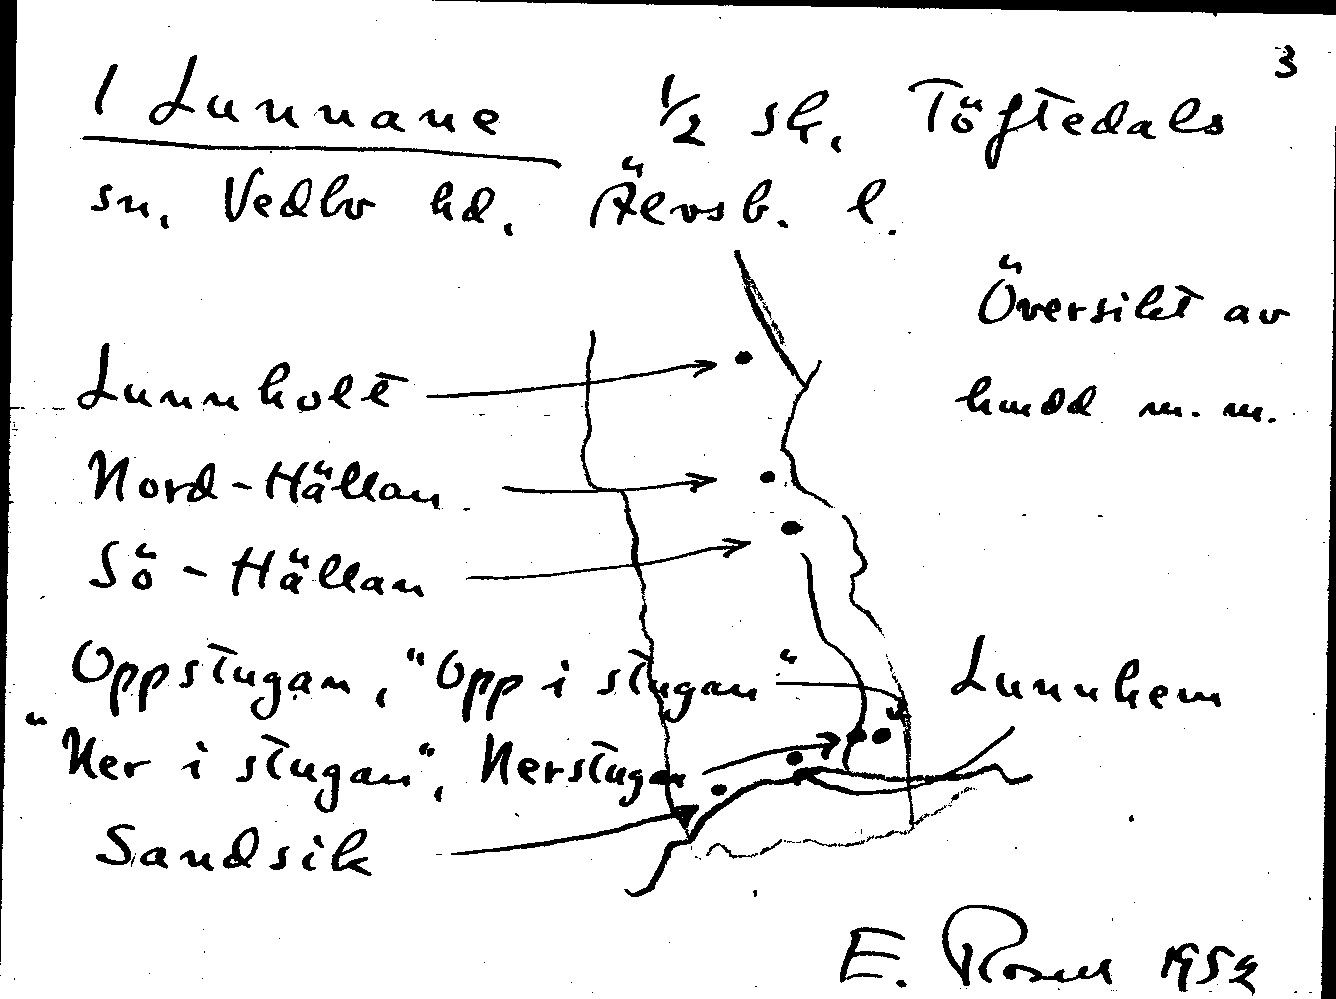 3
1 Lunnane 1/2 sk. Töftedals
sn. Vedbo hd. Älvsb. l.
Översikt av
Lunnholt
hmdd m. m.
Nord-Hällan
Sö-Hällan
Oppstugan, "Opp i stugan" Lunnhem
"Ner i stugan", Nerstugan
Sandsik
E. Rosell 1952